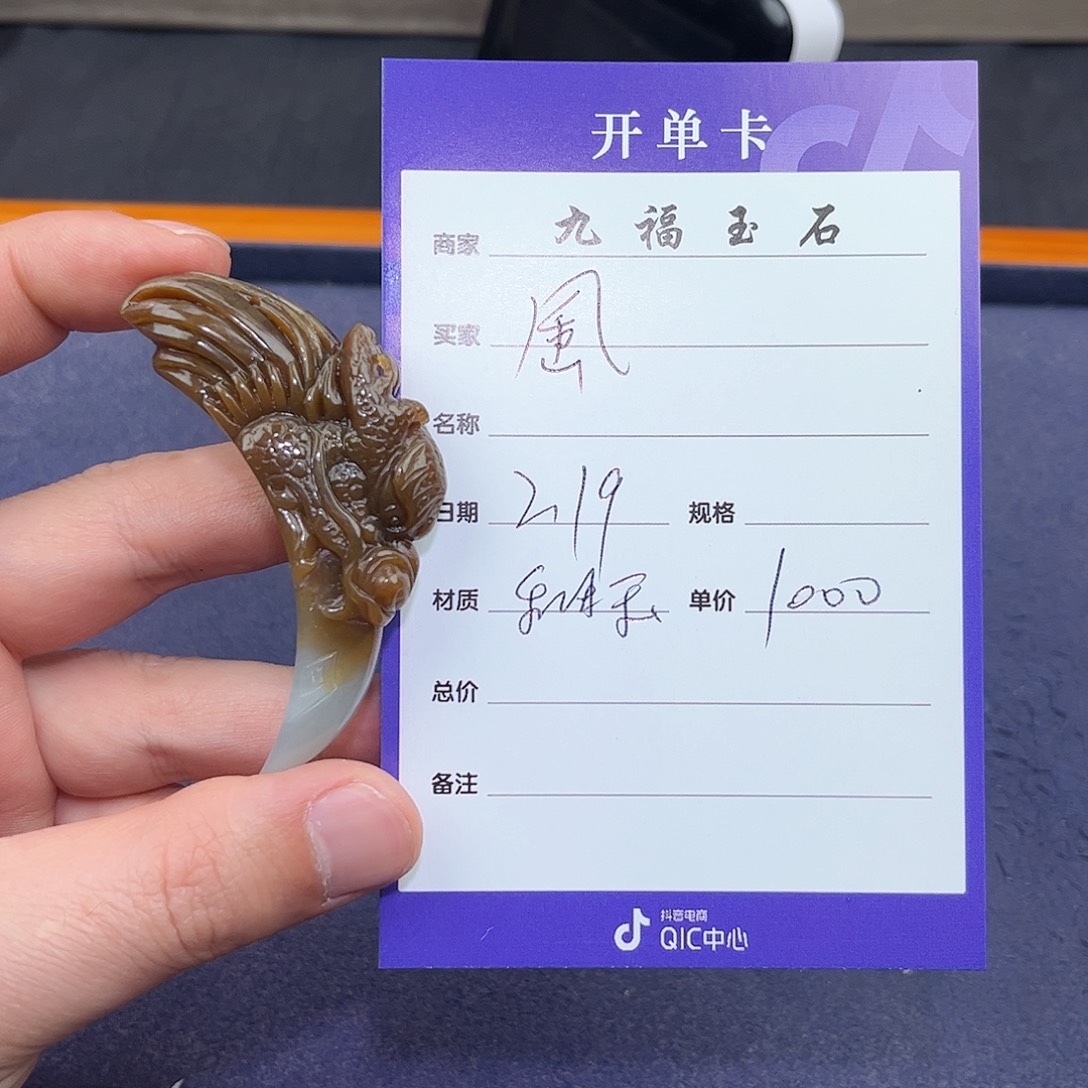 开单卡
商家 九福玉石
买家 風
名称
日期 2.19 规格
材质 和田玉 单价 1000
总价
备注
抖音电商
QIC中心